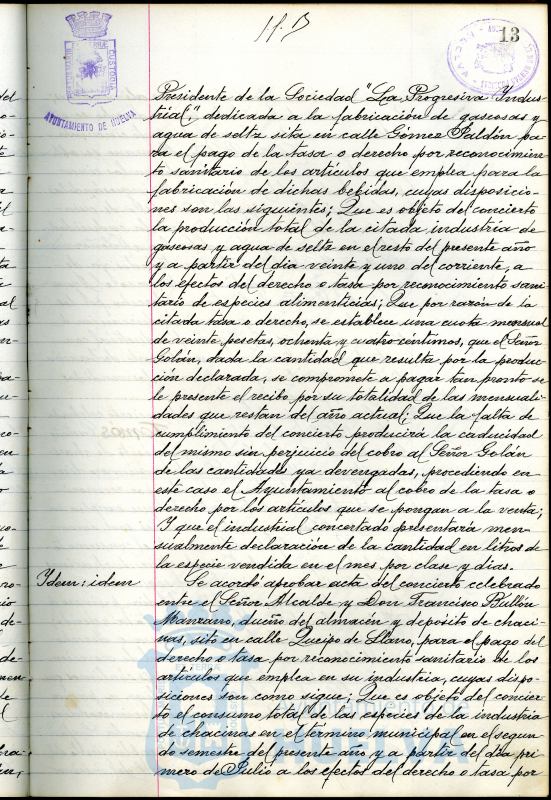 13
AYUNTAMIENTO DE HUELVA
Presidente de la Sociedad "La Progresiva Indus-
trial", dedicada a la fabricación de gaseosas y
agua de seltz sita en calle Gómez Jaldón pa-
ra el pago de la tasa o derecho por reconocimien-
to sanitario de los artículos que emplea para la
fabricación de dichas bebidas, cuyas disposicio-
nes son las siguientes; Que es objeto del concierto
la producción total de la citada industria de
gaseosas y agua de seltz en el resto del presente año
y a partir del dia veinte y uno del corriente, a
los efectos del derecho o tasa por reconocimiento sani-
tario de especies alimenticias; Que por razón de la
citada tasa o derecho, se establece una cuota mensual
de veinte pesetas, ochenta y cuatro céntimos, que el Señor
Golán, dada la cantidad que resulta por la produc-
ción declarada, se compromete a pagar tan pronto se
le presente el recibo por su totalidad de las mensuali-
dades que restan del año actual; Que la falta de
cumplimiento del concierto producirá la caducidad
del mismo sin perjuicio del cobro al Señor Golán
de las cantidades ya devengadas, procediendo en
este caso el Ayuntamiento al cobro de la tasa o
derecho por los artículos que se pongan a la venta;
Y que el industrial concertado presentará men-
sualmente declaración de la cantidad en litros de
la especie vendida en el mes por clase y dias.
Ydem; idem
Se acordó aprobar acta del concierto celebrado
entre el Señor Alcalde y Don Francisco Bullón
Manzano, dueño del almacén y depósito de chaci-
nas, sito en calle Queipo de Llano, para el pago del
derecho o tasa por reconocimiento sanitario de los
artículos que emplea en su industria, cuyas dispo-
siciones son como sigue; Que es objeto del concier-
to el consumo total de las especies de la industria
de chacinas en el término municipal en el segun-
do semestre del presente año y a partir del día pri-
mero de Julio a los efectos del derecho o tasa por